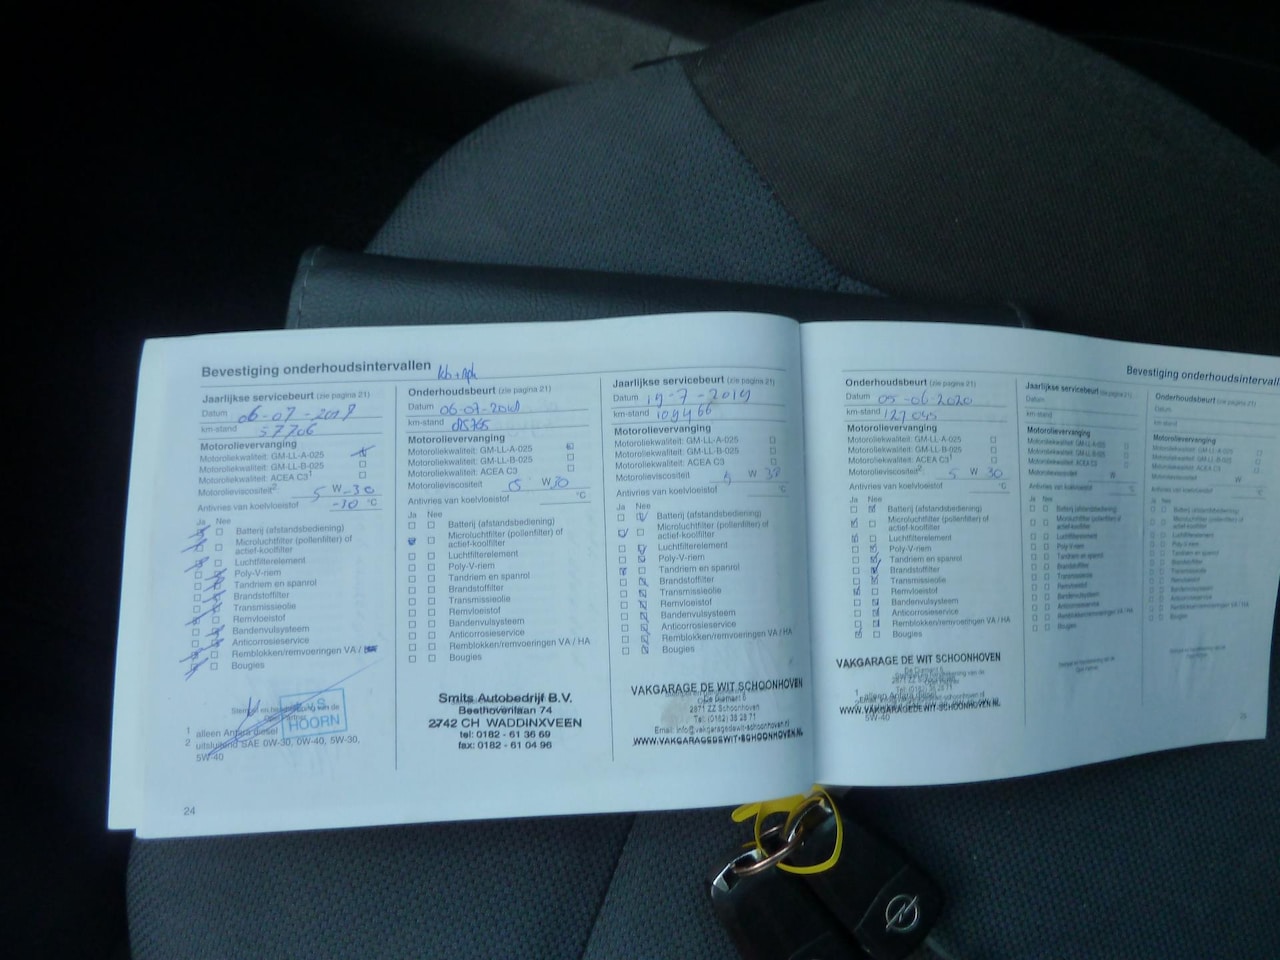 Bevestiging onderhoudsintervallen
Jaarlijkse servicebeurt (zie pagina 21)
Datum
km-stand 57706
Motorolievervanging
Motoroliekwaliteit: GM-LL-A-025
Motoroliekwaliteit: GM-LL-B-025
Motoroliekwaliteit: ACEA C3¹
Motorolieviscositeit² 5 W -30
Antivries van koelvloeistof -30 °C
Ja Nee
Batterij (afstandsbediening)
Microluchtfilter (pollenfilter) of
actief-koolfilter
Luchtfilterelement
Poly-V-riem
Tandriem en spanrol
Brandstoffilter
Transmissieolie
Remvloeistof
Bandenvulsysteem
Anticorrosieservice
Remblokken/remvoeringen VA /
Bougies
HOORN
1 alleen Antara diesel
2 uitsluitend SAE 0W-30, 0W-40, 5W-30,
5W-40
24
Onderhoudsbeurt (zie pagina 21)
Datum 06-07-
km-stand
Motorolievervanging
Motoroliekwaliteit: GM-LL-A-025
Motoroliekwaliteit: GM-LL-B-025
Motoroliekwaliteit: ACEA C3
Motorolieviscositeit W 30
Antivries van koelvloeistof °C
Ja Nee
Batterij (afstandsbediening)
Microluchtfilter (pollenfilter) of
actief-koolfilter
Luchtfilterelement
Poly-V-riem
Tandriem en spanrol
Brandstoffilter
Transmissieolie
Remvloeistof
Bandenvulsysteem
Anticorrosieservice
Remblokken/remvoeringen VA / HA
Bougies
Smits Autobedrijf B.V.
Beethovenlaan 74
2742 CH WADDINXVEEN
tel: 0182 - 61 36 69
fax: 0182 - 61 04 96
Jaarlijkse servicebeurt (zie pagina 21)
Datum 19-7-2019
km-stand 109466
Motorolievervanging
Motoroliekwaliteit: GM-LL-A-025
Motoroliekwaliteit: GM-LL-B-025
Motoroliekwaliteit: ACEA C3
Motorolieviscositeit 5 W 30
Antivries van koelvloeistof °C
Ja Nee
Batterij (afstandsbediening)
Microluchtfilter (pollenfilter) of
actief-koolfilter
Luchtfilterelement
Poly-V-riem
Tandriem en spanrol
Brandstoffilter
Transmissieolie
Remvloeistof
Bandenvulsysteem
Anticorrosieservice
Remblokken/remvoeringen VA / HA
Bougies
VAKGARAGE DE WIT SCHOONHOVEN
De Diamant 5
2871 ZZ Schoonhoven
Tel: (0182) 38 28 71
Email: info@vakgaragedewit-schoonhoven.nl
WWW.VAKGARAGEDEWIT-SCHOONHOVEN.NL
Bevestiging onderhoudsintervall
Onderhoudsbeurt (zie pagina 21)
Datum 05-06-2020
km-stand 127045
Motorolievervanging
Motoroliekwaliteit: GM-LL-A-025
Motoroliekwaliteit: GM-LL-B-025
Motoroliekwaliteit: ACEA C3¹
Motorolieviscositeit² 5 W 30
Antivries van koelvloeistof °C
Ja Nee
Batterij (afstandsbediening)
Microluchtfilter (pollenfilter) of
actief-koolfilter
Luchtfilterelement
Poly-V-riem
Tandriem en spanrol
Brandstoffilter
Transmissieolie
Remvloeistof
Bandenvulsysteem
Anticorrosieservice
Remblokken/remvoeringen VA / HA
Bougies
VAKGARAGE DE WIT SCHOONHOVEN
WWW.VAKGARAGEDEWIT-SCHOONHOVEN.NL
5W-40
Jaarlijkse servicebeurt (zie pagina 21)
Datum
km-stand
Motorolievervanging
Motoroliekwaliteit: GM-LL-A-025
Motoroliekwaliteit: GM-LL-B-025
Motoroliekwaliteit: ACEA C3
Motorolieviscositeit W
Antivries van koelvloeistof °C
Ja Nee
Batterij (afstandsbediening)
Microluchtfilter (pollenfilter) of
actief-koolfilter
Luchtfilterelement
Poly-V-riem
Tandriem en spanrol
Brandstoffilter
Transmissieolie
Remvloeistof
Bandenvulsysteem
Anticorrosieservice
Remblokken/remvoeringen VA / HA
Bougies
Onderhoudsbeurt (zie pagina 21)
Datum
km-stand
Motorolievervanging
Motoroliekwaliteit: GM-LL-A-025
Motoroliekwaliteit: GM-LL-B-025
Motoroliekwaliteit: ACEA C3
Motorolieviscositeit W
Antivries van koelvloeistof
Ja Nee
Batterij (afstandsbediening)
Microluchtfilter (pollenfilter) of
actief-koolfilter
Luchtfilterelement
Poly-V-riem
Tandriem en spanrol
Brandstoffilter
Transmissieolie
Remvloeistof
Bandenvulsysteem
Anticorrosieservice
Remblokken/remvoeringen VA / HA
Bougies